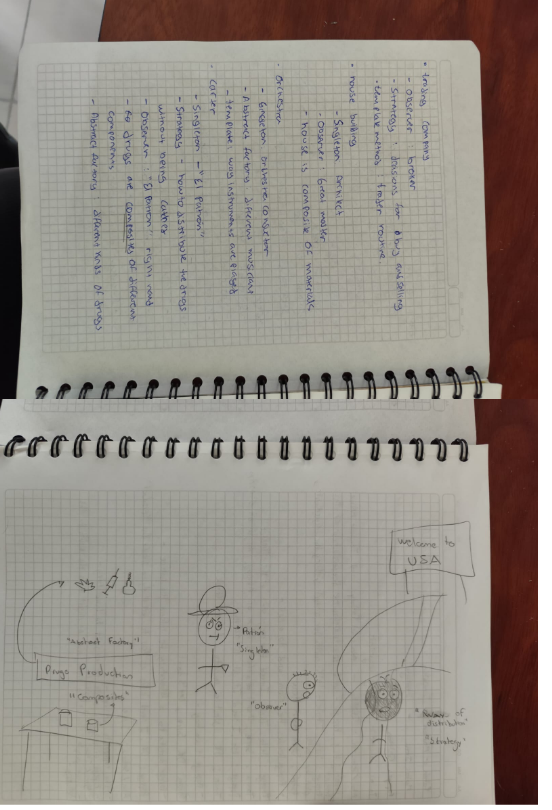 • trading company
- Observer broker
- Strategy : decisions for buying and selling
- template method trader routine
• house building
- Singleton Architect
- Observer Great maker
- house is composite of materials
• Orchestra
- orchestra conductor
- Abstract factory different musicians
- template, way instruments are played
• Cartel
- Singleton - "El Patron"
- Strategy - how to distribute the drugs
without being caught
- Observer "El patron" right hand
- drugs are composites of different
components
- Abstract factory different kinds of drugs
welcome to
USA
"Abstract Factory"
Drugs Production
"Composites"
→ Patron
"Singleton"
"Observer"
of
distribution"
"Strategy"